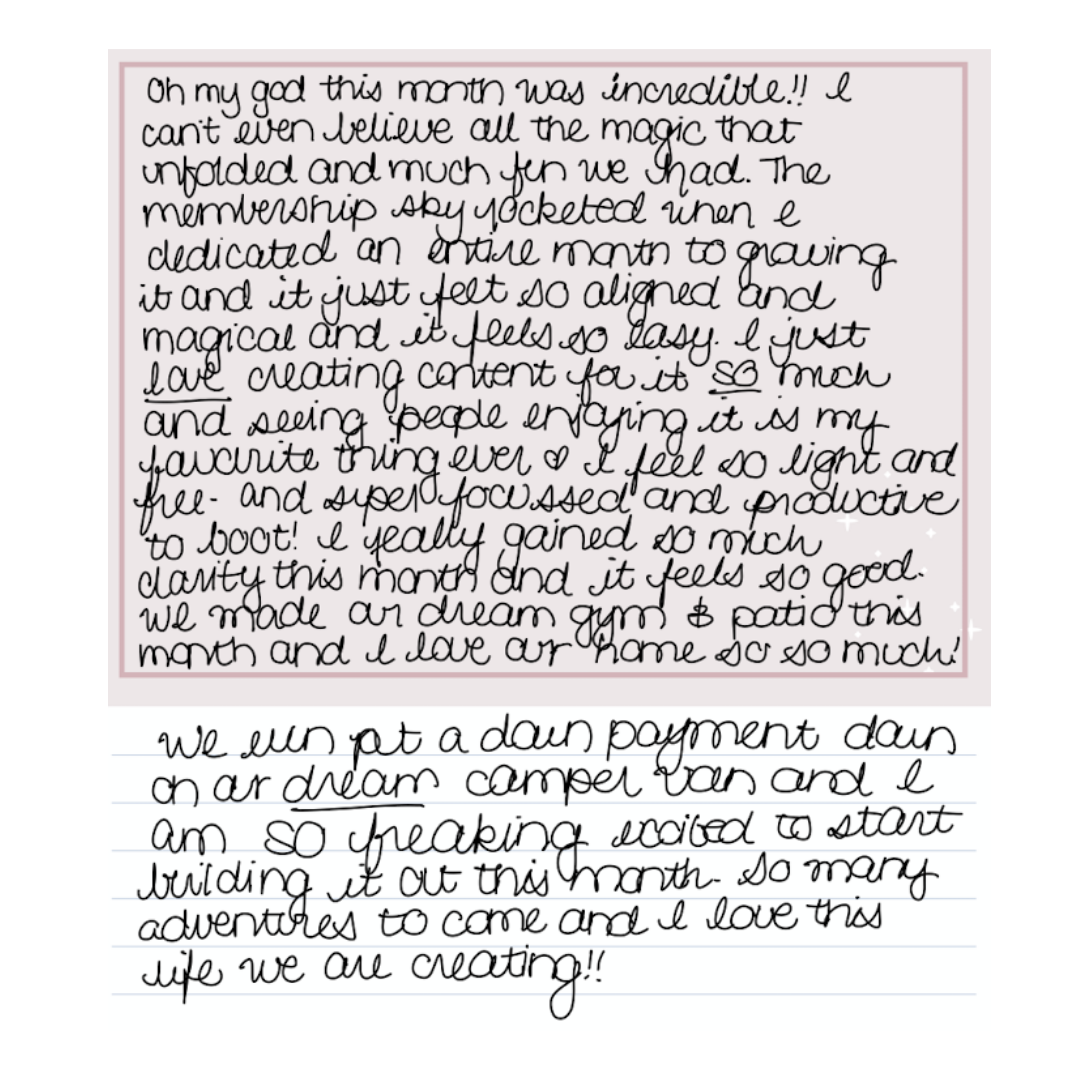 Oh my god this month was incredible!! I
can't even believe all the magic that
unfolded and much fun we had. The
membership sky rocketed when I
dedicated an entire month to growing
it and it just felt so aligned and
magical and it feels so easy. I just
love creating content for it so much
and seeing people enjoying it is my
favourite thing ever ♡ I feel so light and
free- and super focussed and productive
to boot! I really gained so much
clarity this month and it feels so good.
we made our dream gym & patio this
month and I love our home so so much!
we even put a down payment down
on our dream camper van and I
am so freaking excited to start
building it out this month. So many
adventures to come and I love this
life we are creating!!